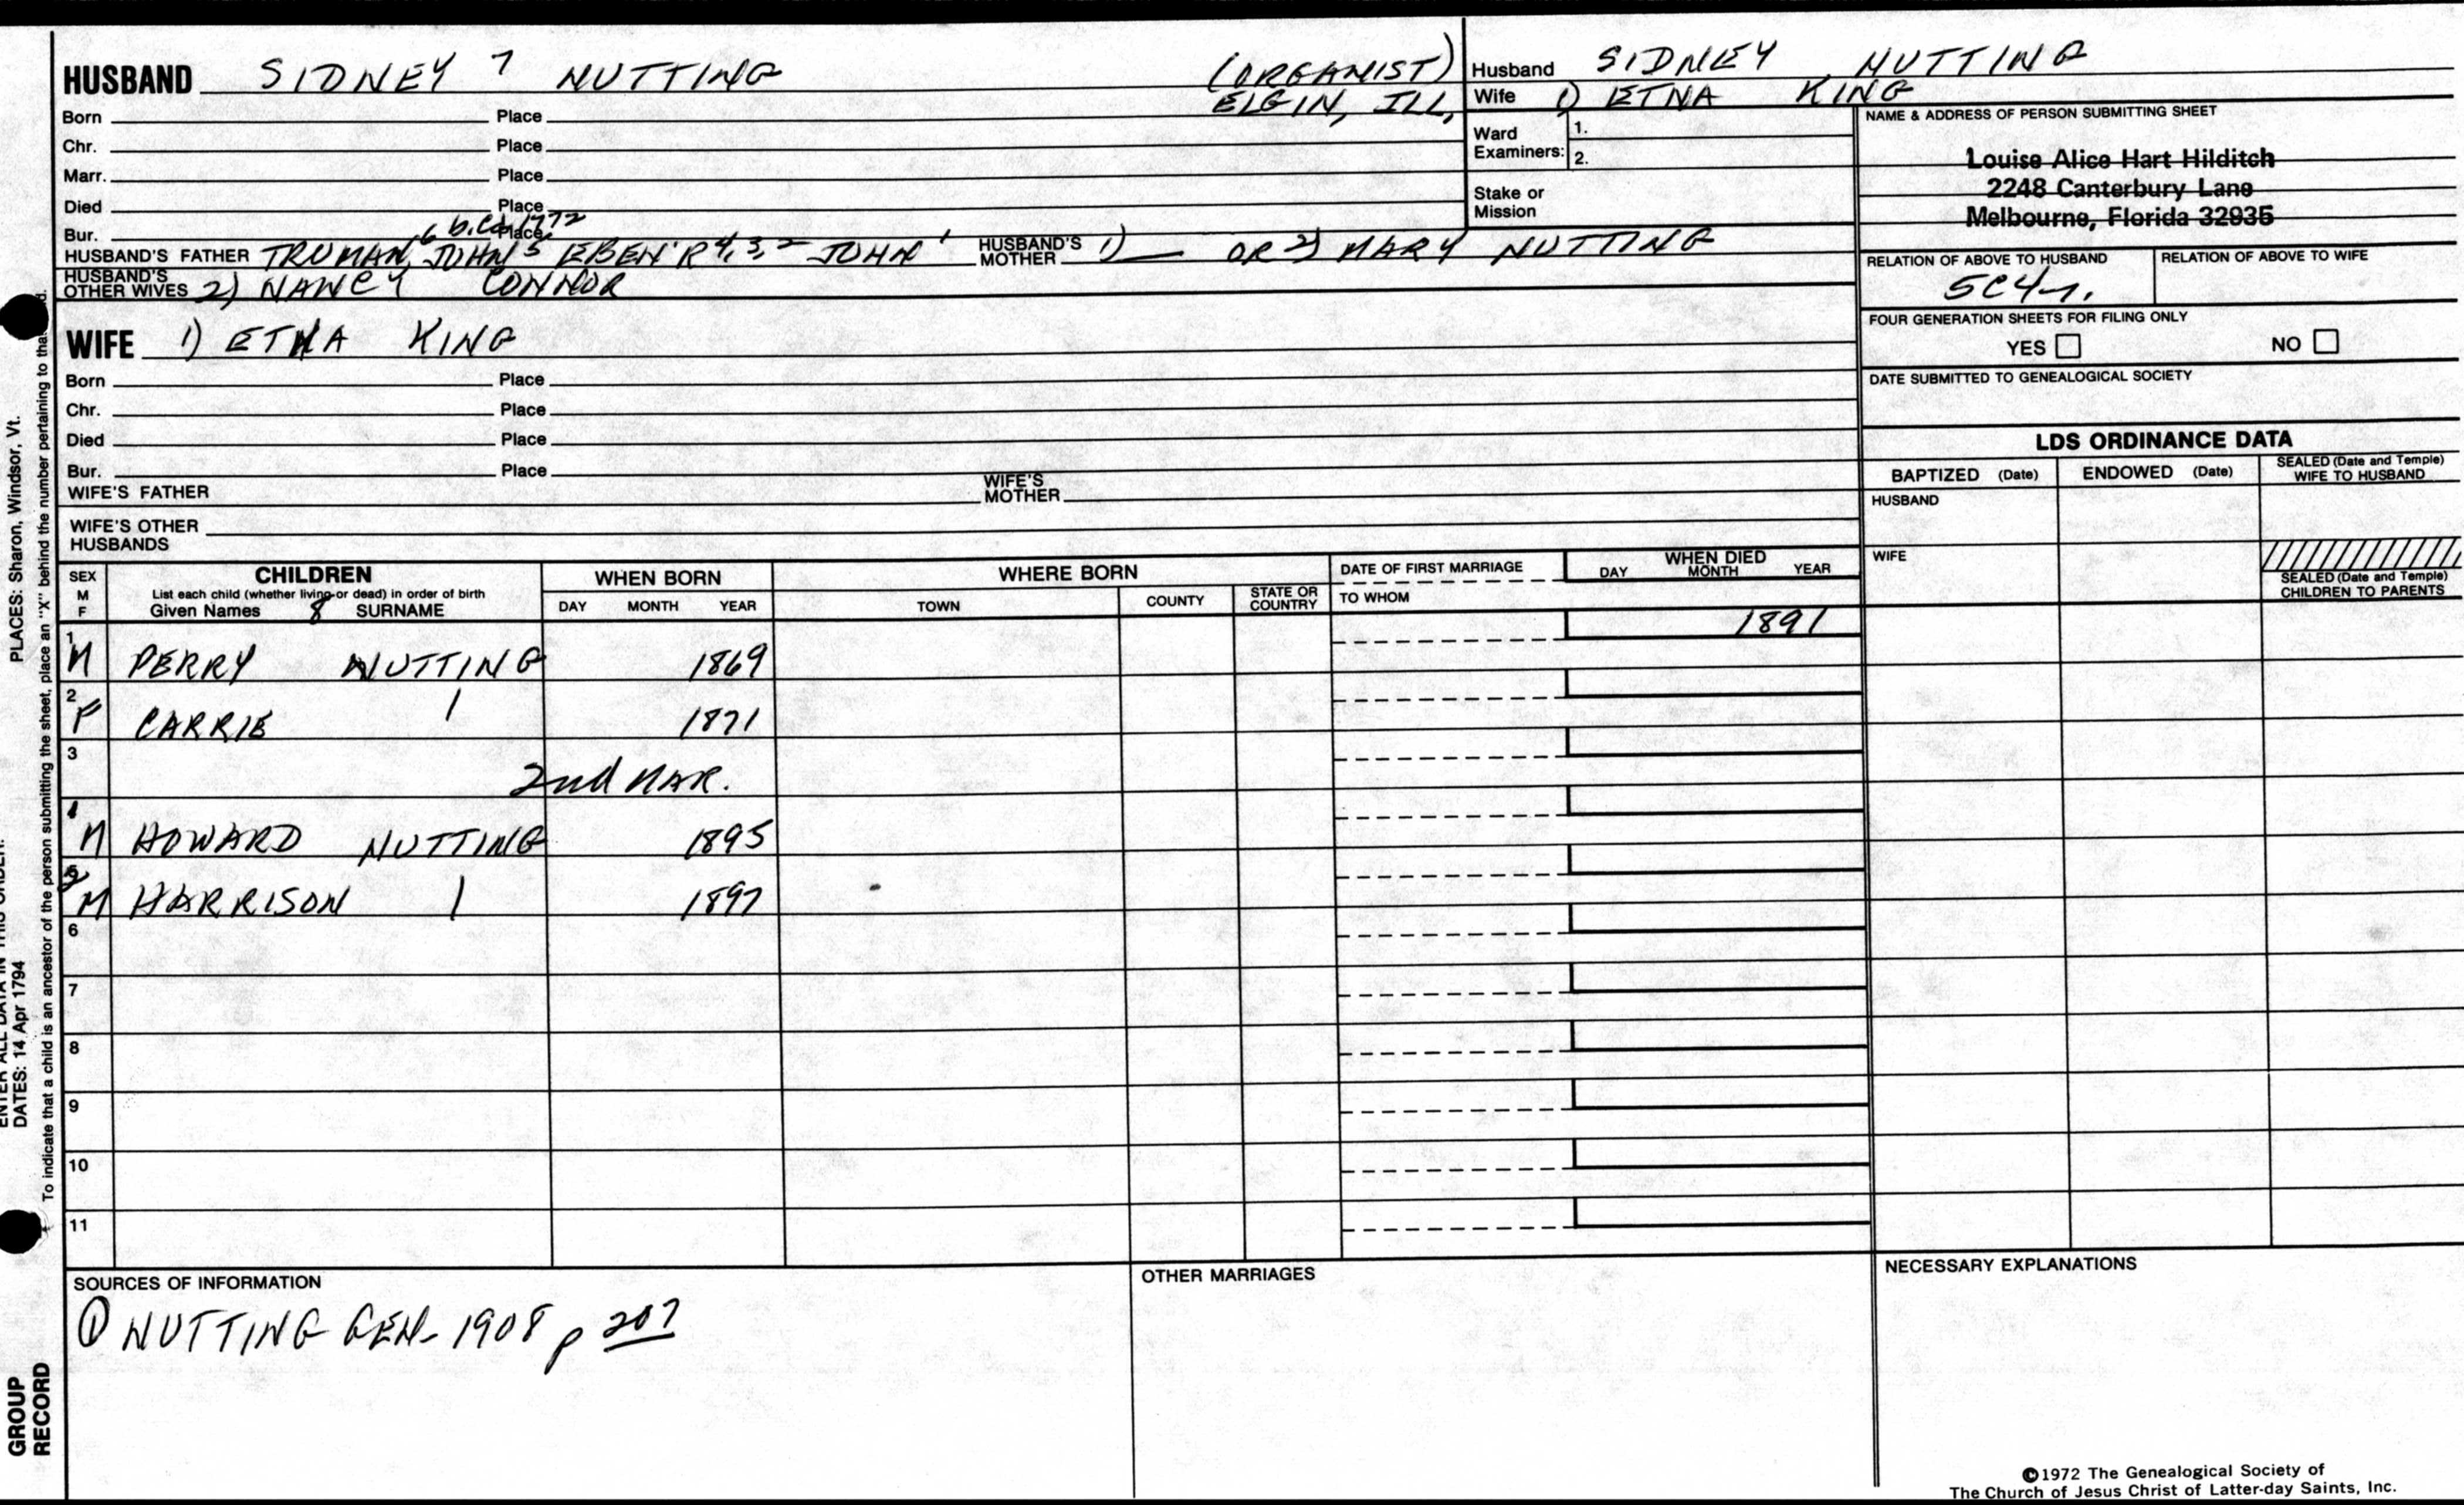 HUSBAND SIDNEY 7 NUTTING (ORGANIST)
ELGIN, ILL,
Born Place
Chr. Place
Marr. Place
Died Place
Bur. Place
6 b. Ca 1772
HUSBAND'S FATHER TRUMAN, JOHN 5 EBEN'R 4, 3, 2 JOHN 1 HUSBAND'S MOTHER 1) — OR 2) MARY NUTTING
HUSBAND'S OTHER WIVES 2) NANCY CONNOR
WIFE 1) ETNA KING
Born Place
Chr. Place
Died Place
Bur. Place
WIFE'S FATHER WIFE'S MOTHER
WIFE'S OTHER HUSBANDS
Husband SIDNEY NUTTING
Wife 1) ETNA KING
Ward Examiners: 1.
2.
Stake or Mission
NAME & ADDRESS OF PERSON SUBMITTING SHEET
Louise Alice Hart Hilditch
2248 Canterbury Lane
Melbourne, Florida 32935
RELATION OF ABOVE TO HUSBAND RELATION OF ABOVE TO WIFE
5C4r.
FOUR GENERATION SHEETS FOR FILING ONLY
YES NO
DATE SUBMITTED TO GENEALOGICAL SOCIETY
LDS ORDINANCE DATA
BAPTIZED (Date) ENDOWED (Date) SEALED (Date and Temple) WIFE TO HUSBAND
HUSBAND
WIFE
SEALED (Date and Temple) CHILDREN TO PARENTS
SEX M F
CHILDREN
List each child (whether living or dead) in order of birth
Given Names 8 SURNAME
WHEN BORN
DAY MONTH YEAR
WHERE BORN
TOWN COUNTY STATE OR COUNTRY
DATE OF FIRST MARRIAGE
TO WHOM
WHEN DIED
DAY MONTH YEAR
1 M PERRY NUTTING 1869 1891
2 F CARRIE 1 1871
3 2nd MAR.
4 M HOWARD NUTTING 1895
5 M HARRISON 1 1897
6
7
8
9
10
11
SOURCES OF INFORMATION
① NUTTING GEN- 1908 p 207
OTHER MARRIAGES
NECESSARY EXPLANATIONS
©1972 The Genealogical Society of
The Church of Jesus Christ of Latter-day Saints, Inc.
PLACES: Sharon, Windsor, Vt.
DATES: 14 Apr 1794
To indicate that a child is an ancestor of the person submitting the sheet, place an "X" behind the number pertaining to
GROUP
RECORD